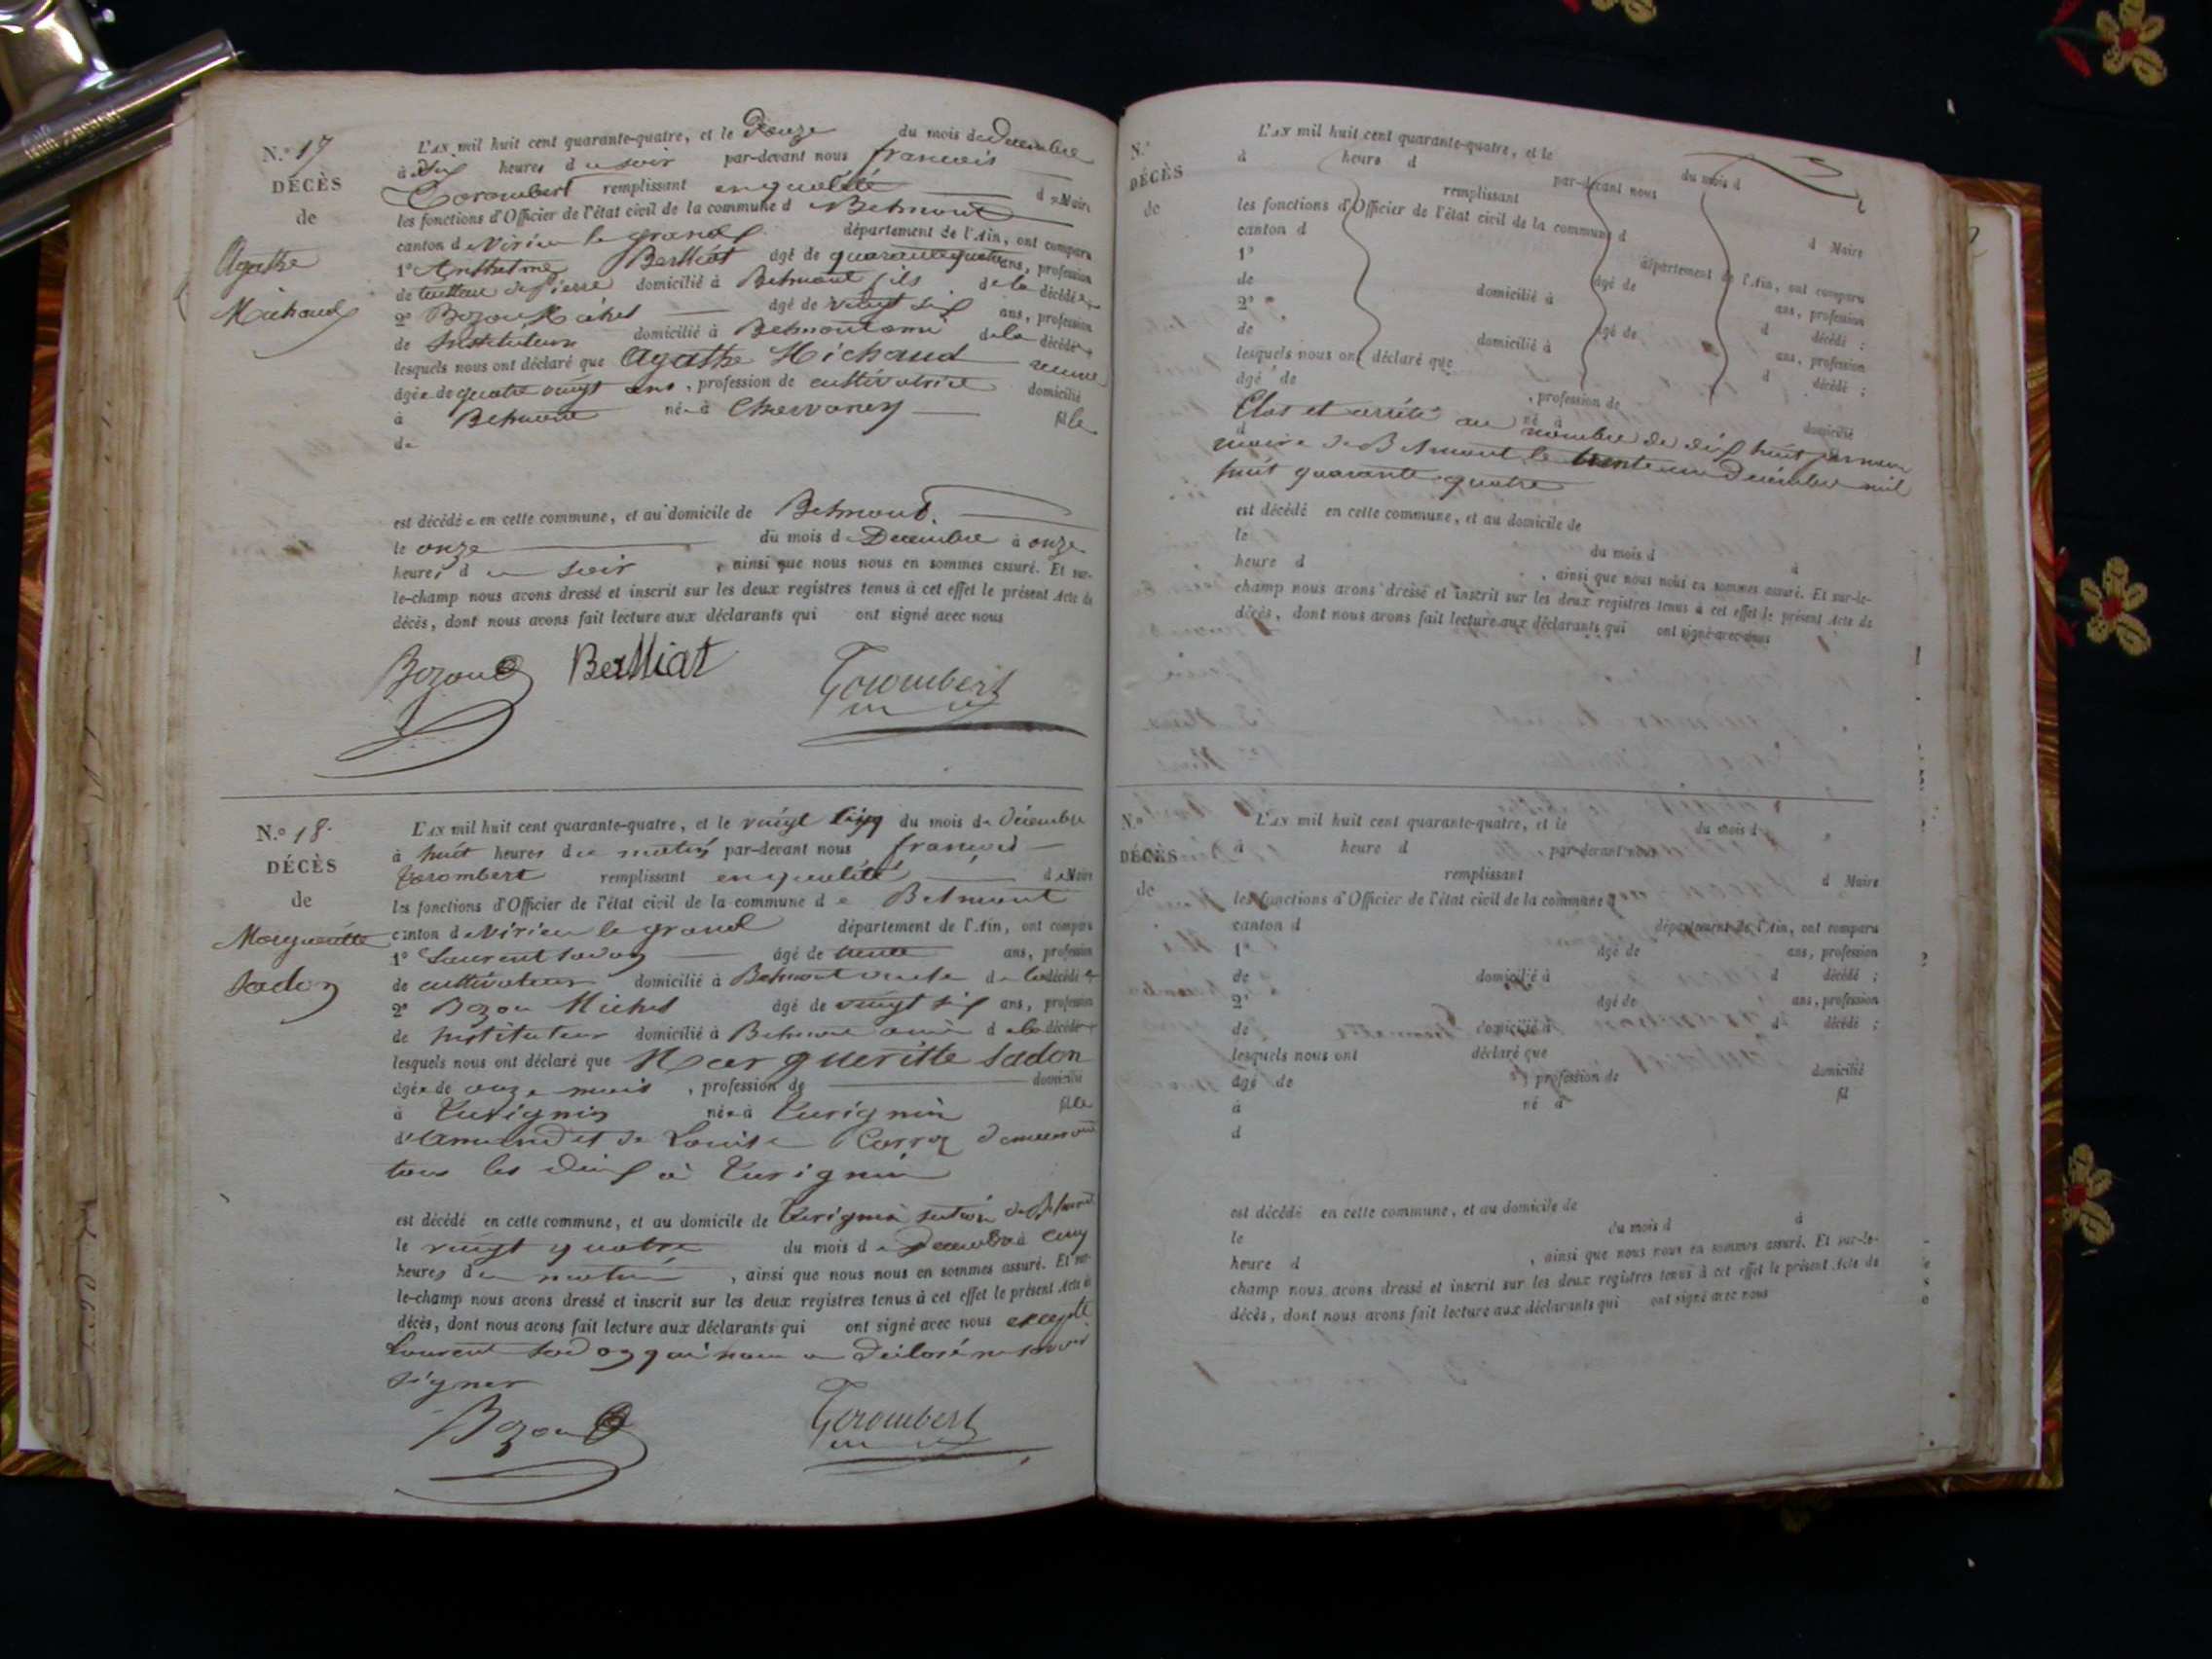 N.° 17
DÉCÈS
de
Agathe
Michaud
L'AN mil huit cent quarante-quatre, et le Douze du mois de Décembre
à Six heures du soir par-devant nous francois
Corombert remplissant en qualité de Maire
les fonctions d'Officier de l'état civil de la commune de Belmont
canton de Virieu le grand département de l'Ain, ont comparu
1° Anthelme Berlliat âgé de quarante quatre ans, profession
de tailleur de Pierre domicilié à Belmont fils de la décédée
2° Bozon Michel âgé de vingt six ans, profession
de Instituteur domicilié à Belmont ami de la décédée
lesquels nous ont déclaré que Agathe Michaud veuve
âgée de quatre vingt ans, profession de cultivatrice domicilié
à Belmont née à Chervoney fille
de
est décédée en cette commune, et au domicile de Belmont.
le onze du mois de Décembre à onze
heures du soir, ainsi que nous nous en sommes assuré. Et sur-
le-champ nous avons dressé et inscrit sur les deux registres tenus à cet effet le présent Acte de
décès, dont nous avons fait lecture aux déclarants qui ont signé avec nous
Bozon Berlliat Corombert
N.° 18
DÉCÈS
de
Margueritte
Sadon
L'AN mil huit cent quarante-quatre, et le vingt cinq du mois de décembre
à huit heures du matin par-devant nous francois
Corombert remplissant en qualité de Maire
les fonctions d'Officier de l'état civil de la commune de Belmont
canton de Virieu le grand département de l'Ain, ont comparu
1° Laurent Sadon âgé de trente ans, profession
de cultivateur domicilié à Belmont oncle de la décédée
2° Bozon Michel âgé de vingt six ans, profession
de Instituteur domicilié à Belmont ami de la décédée
lesquels nous ont déclaré que Margueritte Sadon
âgée de onze mois, profession de domicilié
à Vurignin née à Vurignin fille
d'Armand et de Louise Carroz demeurant
tous les deux à Vurignin
est décédé en cette commune, et au domicile de Vurignin section de Belmont
le vingt quatre du mois de Decembre à cinq
heures du matin, ainsi que nous nous en sommes assuré. Et sur-
le-champ nous avons dressé et inscrit sur les deux registres tenus à cet effet le présent Acte de
décès, dont nous avons fait lecture aux déclarants qui ont signé avec nous excepté
Laurent Sadon qui nous a déclaré ne savoir
signer
Bozon Corombert
N.°
DÉCÈS
de
L'AN mil huit cent quarante-quatre, et le du mois d
à heure d par-devant nous
remplissant d Maire
les fonctions d'Officier de l'état civil de la commune d
canton d département de l'Ain, ont comparu
1° âgé de ans, profession
de domicilié à d décédé ;
2° âgé de ans, profession
de domicilié à d décédé ;
lesquels nous ont déclaré que
âgé de , profession de domicilié
né à
d
Clos et arrêté au nombre de dix huit par nous
maire de Belmont le trente un Décembre mil
huit quarante quatre
est décédé en cette commune, et au domicile de
le du mois d à
heure d , ainsi que nous nous en sommes assuré. Et sur-le-
champ nous avons dressé et inscrit sur les deux registres tenus à cet effet le présent Acte de
décès, dont nous avons fait lecture aux déclarants qui ont signé avec nous
N.°
DÉCÈS
de
L'AN mil huit cent quarante-quatre, et le du mois d
à heure d par-devant nous
remplissant d Maire
les fonctions d'Officier de l'état civil de la commune d
canton d département de l'Ain, ont comparu
1° âgé de ans, profession
de domicilié à d décédé ;
2° âgé de ans, profession
de domicilié à d décédé ;
lesquels nous ont déclaré que
âgé de , profession de domicilié
à né à fil
d
est décédé en cette commune, et au domicile de
le du mois d à
heure d , ainsi que nous nous en sommes assuré. Et sur-le-
champ nous avons dressé et inscrit sur les deux registres tenus à cet effet le présent Acte de
décès, dont nous avons fait lecture aux déclarants qui ont signé avec nous